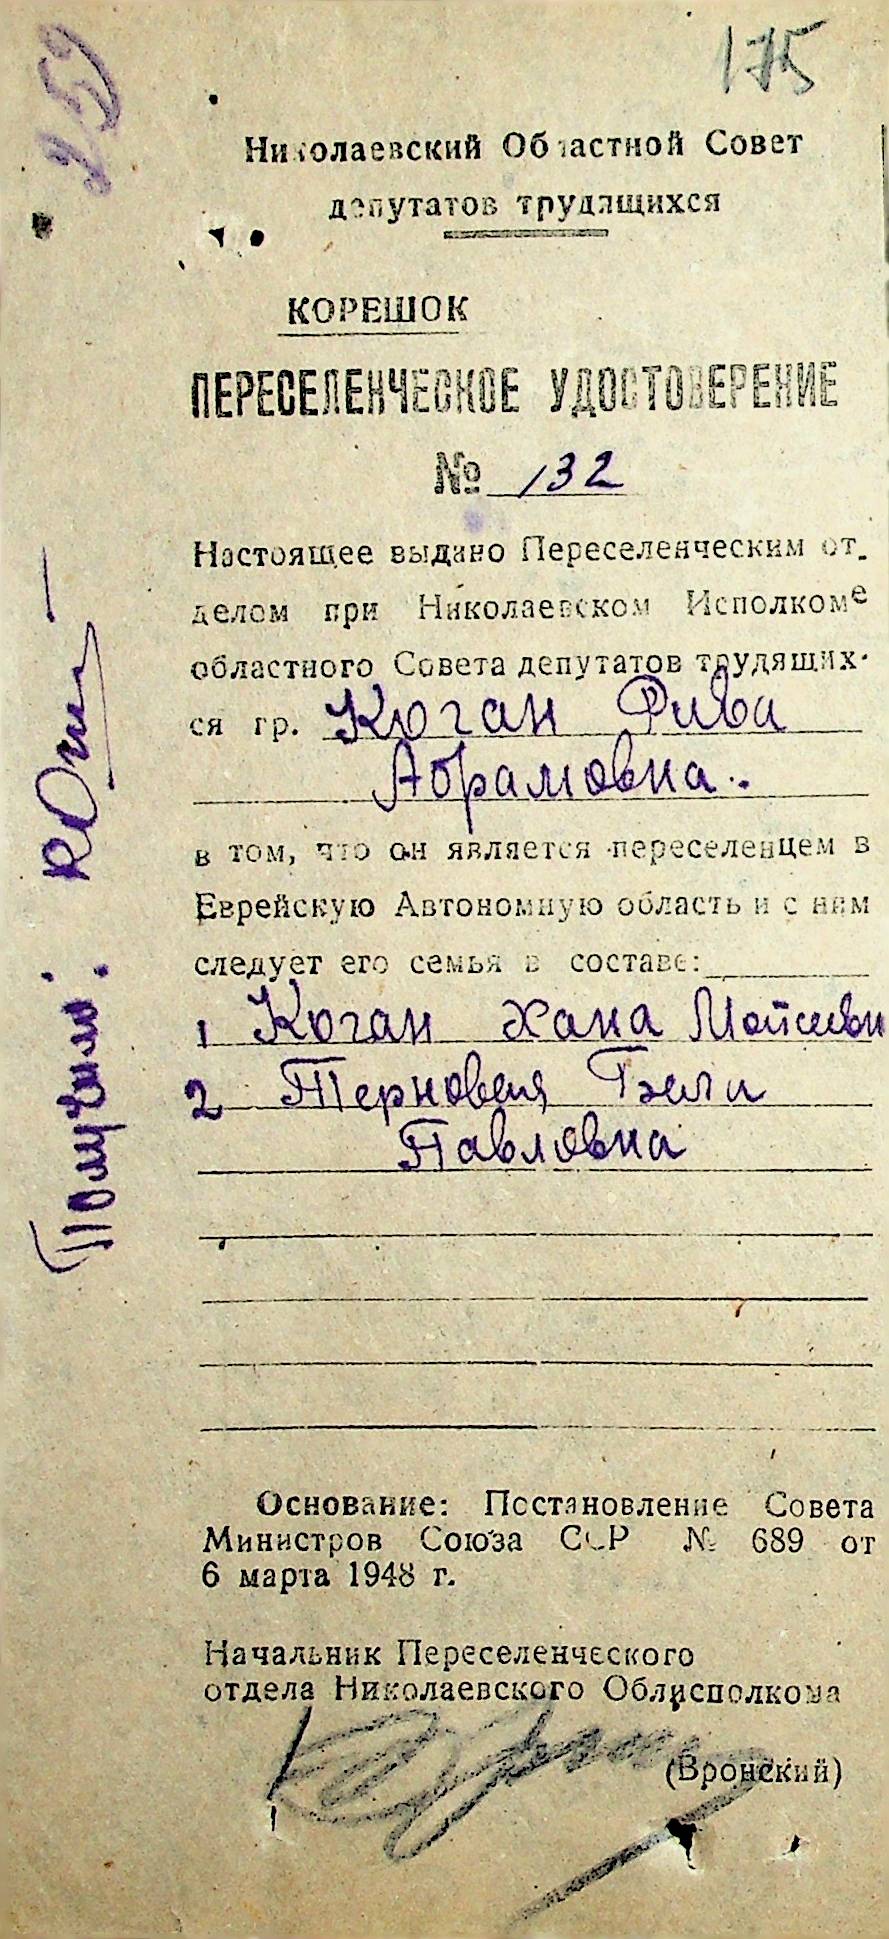 175
259
Николаевский Областной Совет
депутатов трудящихся
КОРЕШОК
ПЕРЕСЕЛЕНЧЕСКОЕ УДОСТОВЕРЕНИЕ
№ 132
Настоящее выдано Переселенческим от-
делом при Николаевском Исполкоме
областного Совета депутатов трудящих-
ся гр. Коган Рива
Абрамовна.
в том, что он является переселенцем в
Еврейскую Автономную область и с ним
следует его семья в составе:
1 Коган Хана Мойсеевн
2 Терновая Бэла
Павловна
Основание: Постановление Совета
Министров Союза ССР № 689 от
6 марта 1948 г.
Начальник Переселенческого
отдела Николаевского Облисполкома
(Вронский)
Получила: